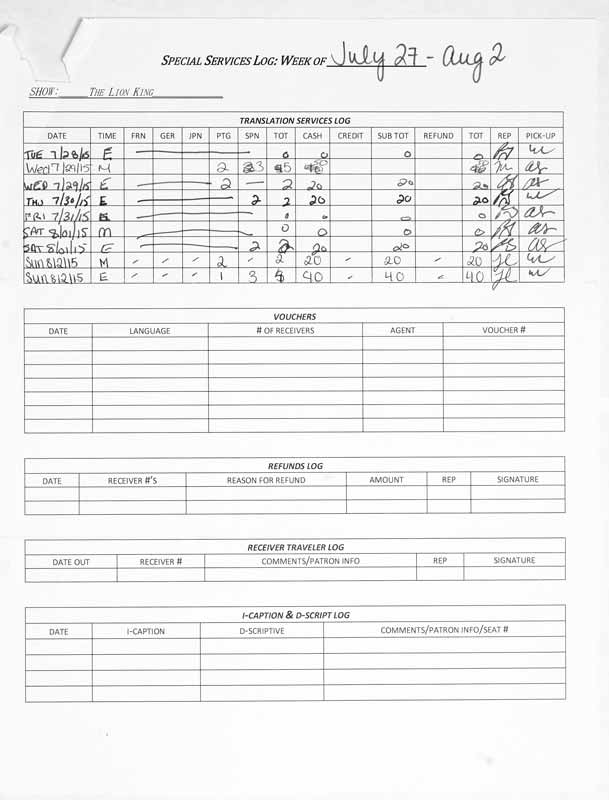 SPECIAL SERVICES LOG: WEEK OF July 27 - Aug 2
SHOW: THE LION KING
TRANSLATION SERVICES LOG
DATE TIME FRN GER JPN PTG SPN TOT CASH CREDIT SUB TOT REFUND TOT REP PICK-UP
TUE 7/28/15 E 0 0 0 0
Wed 7/29/15 M 2 3 5
WED 7/29/15 E 2 — 2 20 20 20
THU 7/30/15 E 2 2 20 20 20
FRI 7/31/15 E 0 0 0 0
SAT 8/01/15 M 0 0 0 0
SAT 8/01/15 E 2 2 20 20 20
Sun 8/2/15 M - - - 2 - 2 20 - 20 - 20
Sun 8/2/15 E - - - 1 3 40 - 40 - 40
VOUCHERS
DATE LANGUAGE # OF RECEIVERS AGENT VOUCHER #
REFUNDS LOG
DATE RECEIVER #'S REASON FOR REFUND AMOUNT REP SIGNATURE
RECEIVER TRAVELER LOG
DATE OUT RECEIVER # COMMENTS/PATRON INFO REP SIGNATURE
I-CAPTION & D-SCRIPT LOG
DATE I-CAPTION D-SCRIPTIVE COMMENTS/PATRON INFO/SEAT #